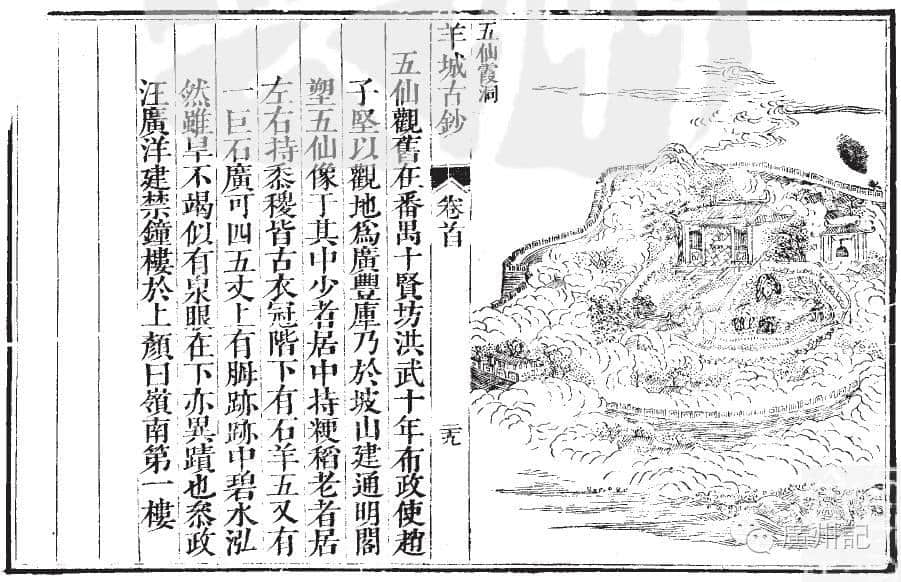 五仙霞洞
羊城古鈔
卷首
二十九
五仙觀舊在番禺十賢坊洪武十年布政使趙
子堅以觀地爲廣豐庫乃於坡山建通明閣
塑五仙像于其中少者居中持粳稻老者居
左右持黍稷皆古衣冠階下有石羊五又有
一巨石廣可四五丈上有拇跡跡中碧水泓
然雖旱不竭似有泉眼在下亦異蹟也叅政
汪廣洋建禁鐘樓於上顏曰嶺南第一樓
廣州記